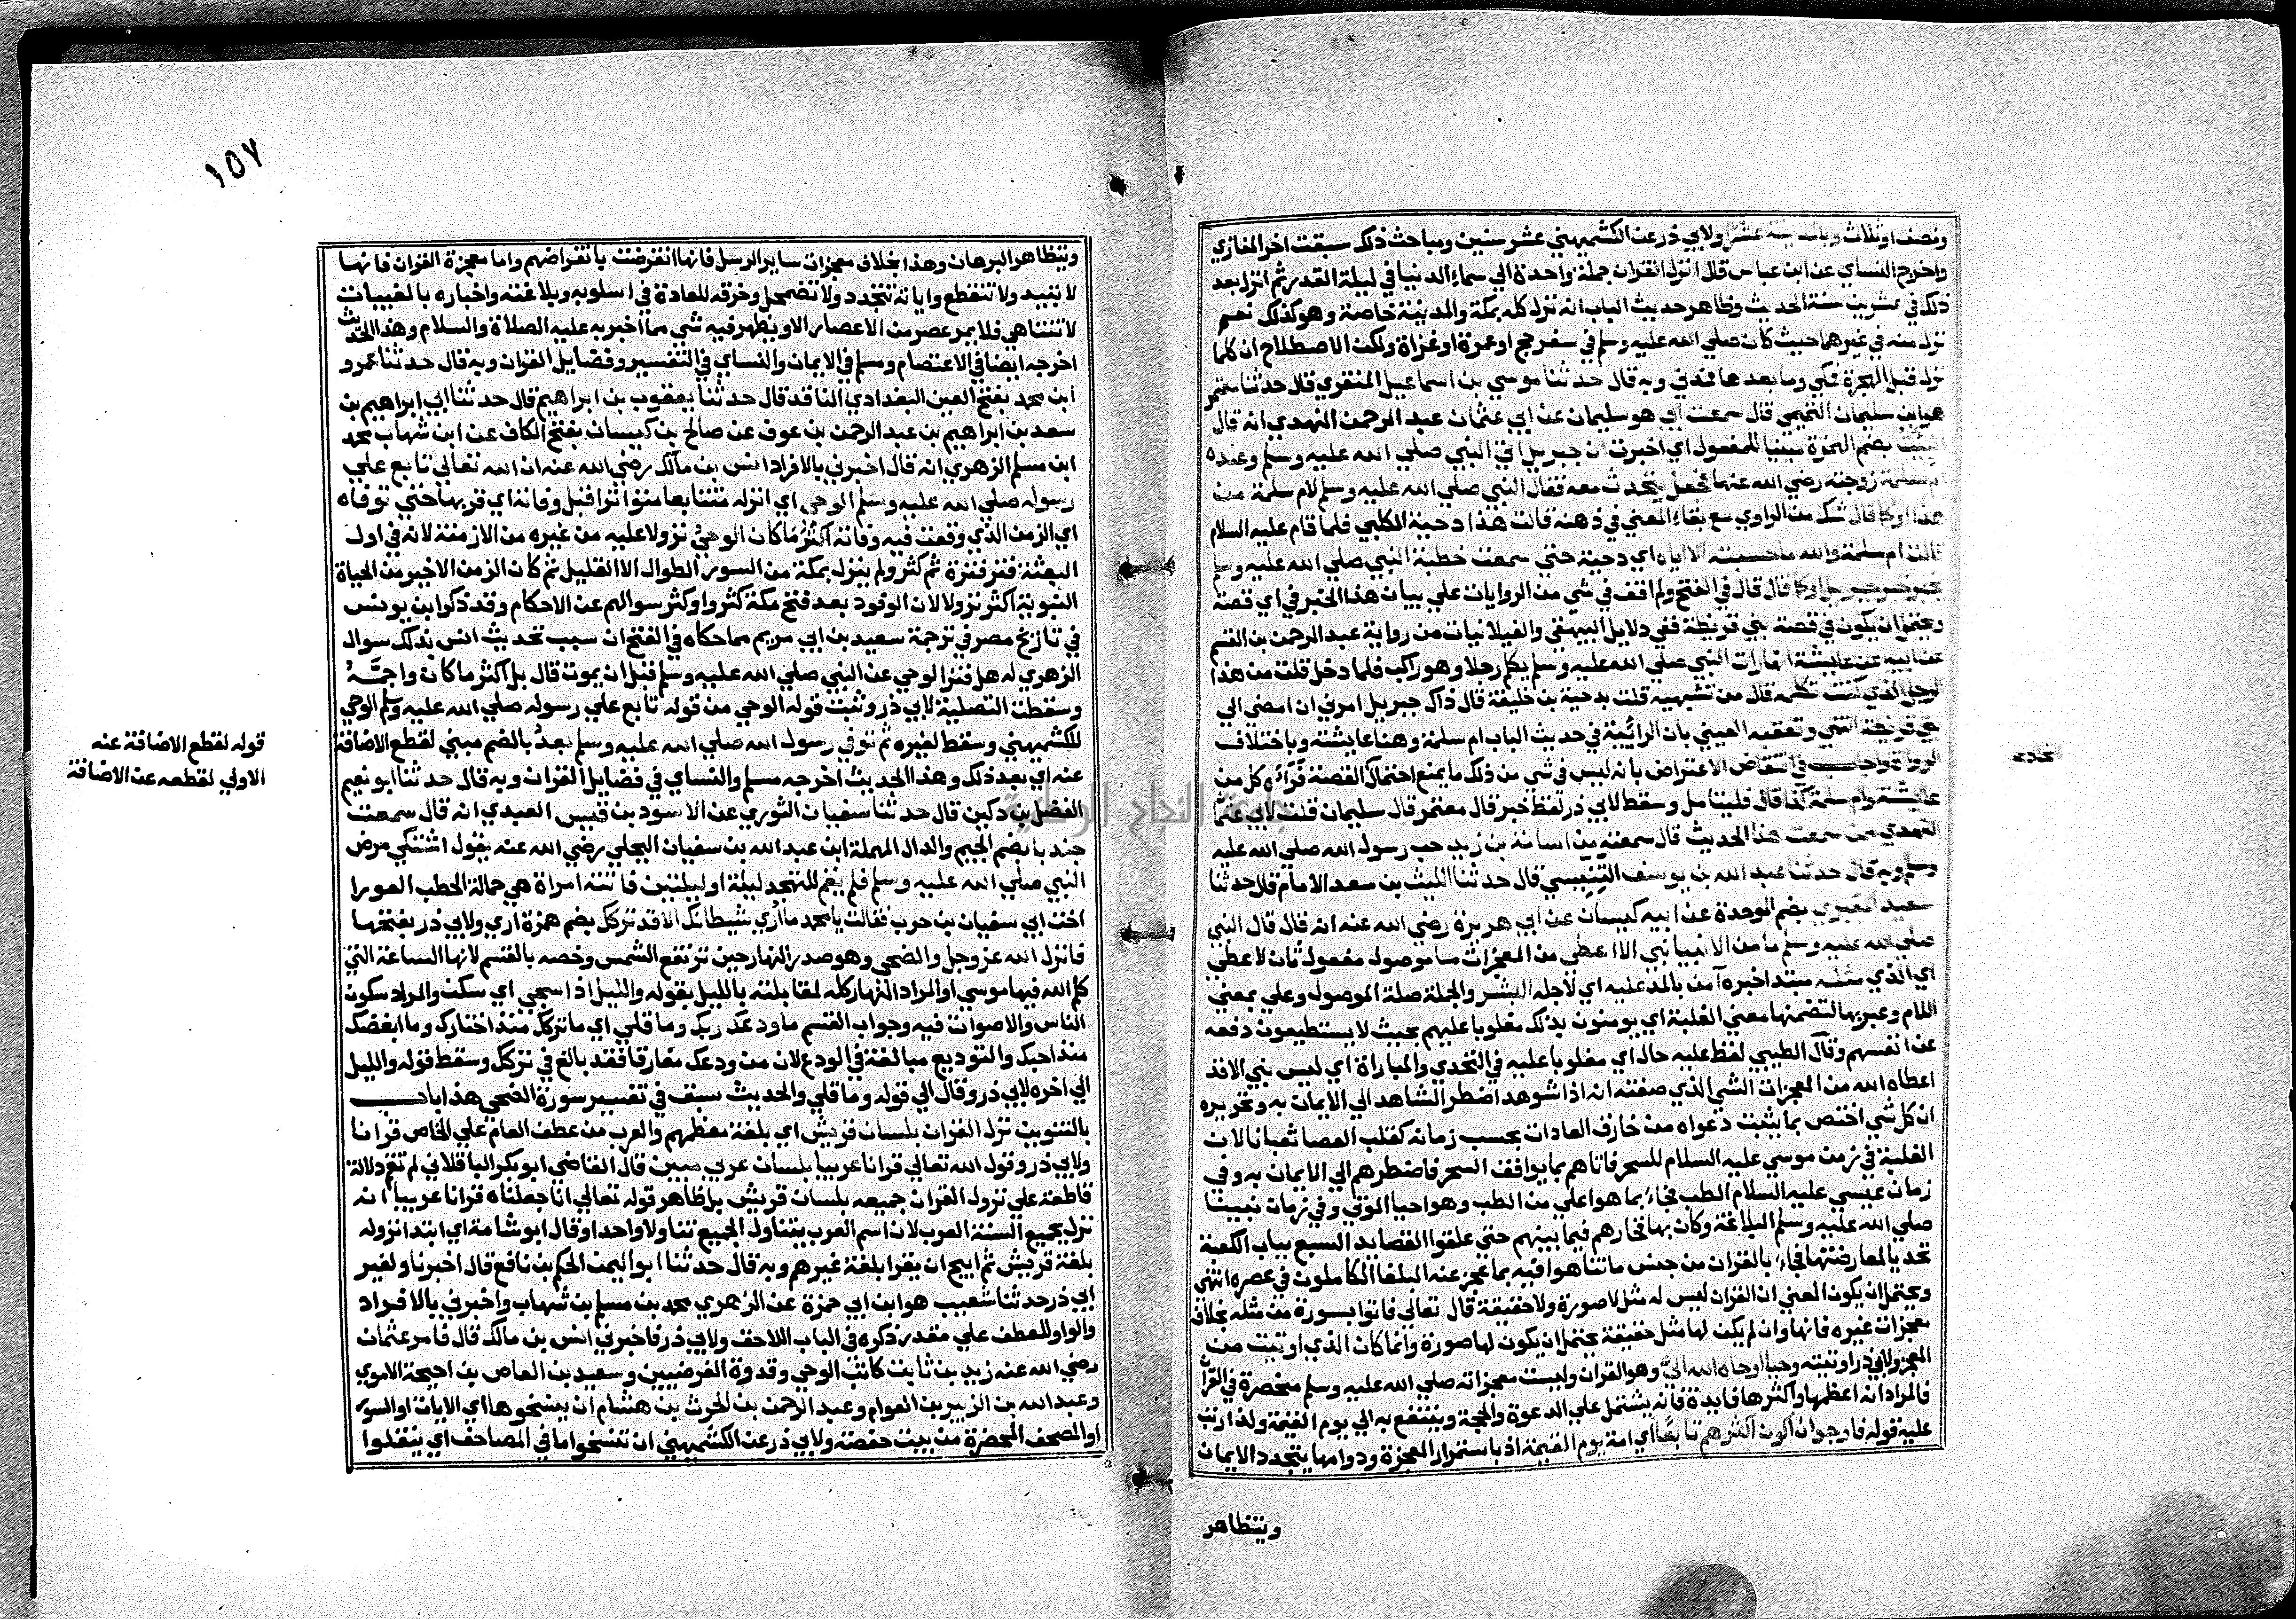 ونصف اوثلاث وبالمدينة عشرا ولابي ذر عن الكشميهني عشر سنين ومباحث ذلك سبقت اخر المغازي
واخرج النساي عن ابن عباس قال انزل القران جملة واحدة الي سماء الدنيا في ليلة القدر ثم انزل بعد
ذلك في عشرين سنة الحديث وظاهر حديث الباب انه نزل كله بمكة والمدينة خاصة وهو كذلك نعم
نزل منه في غيرهما حيث كان صلي الله عليه وسلم في سفر حج او عمرة او غزاة ولكن الاصطلاح ان كلما
نزل قبل الهجرة فمكي وما بعدها فمدني وبه قال حدثنا موسي بن اسماعيل المنقري قال حدثنا معتمر
هو ابن سليمان التيمي قال سمعت ابي هو سليمان عن ابي عثمان عبد الرحمن النهدي انه قال
انبئت بضم الهمزة مبنيا للمفعول اي اخبرت ان جبريل اتي النبي صلي الله عليه وسلم وعنده
ام سلمة زوجته رضي الله عنها فجعل يتحدث معه فقال النبي صلي الله عليه وسلم لام سلمة من
هذا او كما قال شك من الراوي مع بقاء المعني في ذهنه قالت هذا دحية الكلبي فلما قام عليه السلام
قالت ام سلمة والله ما حسبته الا اياه اي دحية حتي سمعت خطبة النبي صلي الله عليه وسلم
يخبر خبر جبريل او كما قال قال في الفتح ولم اقف في شي من الروايات علي بيان هذا الخبر في اي قصة
ويحتمل ان يكون في قصة بني قريظة ففي دلايل البيهقي والغيلانيات من رواية عبد الرحمن بن القسم
عن ابيه عن عايشة انها رات النبي صلي الله عليه وسلم يكلم رجلا وهو راكب فلما دخل قلت من هذا
الرجل الذي كنت تكلمه قال من تشبهيه قلت بدحية بن خليفة قال ذاك جبريل امرني ان امضي الي
بني قريظة انتهي وتعقبه العيني بان الرائية في حديث الباب ام سلمة وهنا عايشة وباختلاف
الرواة واجاب في انتقاض الاعتراض بانه ليس في شي من ذلك ما يمنع احتمال القصة فراه كل من
عايشة وام سلمة كذا قال فليتامل وسقط لابي ذر لفظ خبر قال معتمر قال سليمان قلت لابي عثما
النهدي ممن سمعت هذا الحديث قال سمعته من اسامة بن زيد حب رسول الله صلي الله عليه
وسلم وبه قال حدثنا عبد الله بن يوسف التنيسي قال حدثنا الليث بن سعد الامام قال حدثنا
سعيد المقبري بضم الموحدة عن ابيه كيسان عن ابي هريرة رضي الله عنه انه قال قال النبي
صلي الله عليه وسلم ما من الانبيا نبي الا اعطي من المعجزات ما موصول مفعول ثان لاعطي
اي الذي مثله مبتدا خبره آمن بالمد عليه اي لاجله البشر والجملة صلة الموصول وعلي بمعني
اللام وعبر بها لتضمنها معني الغلبة اي يومنون بذلك مغلوبا عليهم بحيث لا يستطيعون دفعه
عن انفسهم وقال الطيبي لفظ عليه حال اي مغلوبا عليه في التحدي والمباراة اي ليس نبي الا قد
اعطاه الله من المعجزات الشي الذي صفته انه اذا شوهد اضطر الشاهد الي الايمان به وتحريره
ان كل شي اختص بما يثبت دعواه من خارق العادات بحسب زمانه كقلب العصا ثعبانا لان
الغلبة في زمن موسي عليه السلام للسحر فاتاهم بما يوافق السحر فاضطرهم الي الايمان به وفي
زمان عيسي عليه السلام الطب فجاء بما هو اعلي من الطب وهو احيا الموتي وفي زمان نبينا
صلي الله عليه وسلم البلاغة وكان بها فخارهم فيما بينهم حتي علقوا القصايد السبع بباب الكعبة
تحديا لمعارضتها فجاء بالقران من جنس ما تناهوا فيه بما عجز عنه البلغا الكاملون في عصره انتهي
ويحتمل ان يكون المعني ان القران ليس له مثل لا صورة ولا حقيقة قال تعالي فاتوا بسورة من مثله بخلاف
معجزات غيره فانها وان لم يكن لها مثل حقيقة يحتمل ان يكون لها صورة وانما كان الذي اوتيت من
المعجز ولابي ذر اوتيته وحيا اوحاه الله الي وهو القران وليست معجزاته صلي الله عليه وسلم منحصرة في القران
فالمراد انه اعظمها واكثرها فايدة فانه يشتمل علي الدعوة والحجة وينتفع به الي يوم القيمة ولذا رتب
عليه قوله فارجوا ان اكون اكثرهم تابعا اي امة يوم القيمة اذ باستمرار المعجزة ودوامها يتجدد الايمان
ويتظاهر
١٥٧
ويتظاهر البرهان وهذا بخلاف معجزات ساير الرسل فانها انقرضت بانقراضهم واما معجزة القران فانها
لا تبيد ولا تنقطع واياته تتجدد ولا تضمحل وخرقه للعادة في اسلوبه وبلاغته واخباره بالمغيبات
لا تتناهي فلا يمر عصر من الاعصار الا ويظهر فيه شي مما اخبر به عليه الصلاة والسلام وهذا الحديث
اخرجه ايضا في الاعتصام ومسلم في الايمان والنساي في التفسير وفضايل القران وبه قال حدثنا عمرو
ابن محمد بفتح العين البغدادي الناقد قال حدثنا يعقوب بن ابراهيم قال حدثنا ابي ابراهيم بن
سعد بن ابراهيم بن عبد الرحمن بن عوف عن صالح بن كيسان بفتح الكاف عن ابن شهاب محمد
ابن مسلم الزهري انه قال اخبرني بالافراد انس بن مالك رضي الله عنه ان الله تعالي تابع علي
رسوله صلي الله عليه وسلم الوحي اي انزله متتابعا متواترا قبل وفاته اي قربها حتي توفاه
اي الزمن الذي وقعت فيه وفاته اكثر ما كان الوحي نزولا عليه من غيره من الازمنة لانه في اول
البعثة فتر فترة ثم كثر ولم ينزل بمكة من السور الطوال الا القليل ثم كان الزمن الاخير من الحياة
النبوية اكثر نزولا لان الوفود بعد فتح مكة كثروا وكثر سوالهم عن الاحكام وقد ذكر ابن يونس
في تاريخ مصر في ترجمة سعيد بن ابي مريم مما حكاه في الفتح ان سبب تحديث انس بذلك سوال
الزهري له هل فتر الوحي عن النبي صلي الله عليه وسلم قبل ان يموت قال بل اكثر ما كان واجمّه
وسقطت التصلية لابي ذر وثبت قوله الوحي من قوله تابع علي رسوله صلي الله عليه وسلم الوحي
للكشميهني وسقط لغيره ثم توفي رسول الله صلي الله عليه وسلم بعد بالضم مبني لقطع الاضافة
عنه اي بعد ذلك وهذا الحديث اخرجه مسلم والنساي في فضايل القران وبه قال حدثنا ابو نعيم
الفضل بن دكين قال حدثنا سفيان الثوري عن الاسود بن قيس العبدي انه قال سمعت
جندبا بضم الجيم والدال المهملة ابن عبد الله بن سفيان البجلي رضي الله عنه يقول اشتكي مرض
النبي صلي الله عليه وسلم فلم يقم للتهجد ليلة او ليلتين فاتته امراة هي حمالة الحطب العورا
اخت ابي سفيان بن حرب فقالت يا محمد ما اري شيطانك الا قد تركك بضم همزة اري ولابي ذر بفتحها
فانزل الله عز وجل والضحي وهو صدر النهار حين ترتفع الشمس وخصه بالقسم لانها الساعة التي
كلم الله فيها موسي او المراد النهار كله لمقابلته بالليل بقوله والليل اذا سجي اي سكن والمراد سكون
الناس والاصوات فيه وجواب القسم ما ودعك ربك وما قلي اي ما تركك منذ اختارك وما ابغضك
منذ احبك والتوديع مبالغة في الودع لان من ودعك مفارقا فقد بالغ في تركك وسقط قوله والليل
الي اخره لابي ذر وقال الي قوله وما قلي والحديث سبق في تفسير سورة الضحي هذا باب
بالتنوين نزل القران بلسان قريش اي بلغة معظمهم والعرب من عطف العام علي الخاص قرانا
ولابي ذر وقول الله تعالي قرانا عربيا بلسان عربي مبين قال القاضي ابو بكر الباقلاني لم تقع دلالة
قاطعة علي نزول القران جميعه بلسان قريش بل ظاهر قوله تعالي انا جعلناه قرانا عربيا انه
نزل بجميع السنة العرب لان اسم العرب يتناول الجميع تناولا واحدا وقال ابو شامة اي ابتدا نزوله
بلغة قريش ثم ابيح ان يقرا بلغة غيرهم وبه قال حدثنا ابو اليمن الحكم بن نافع قال اخبرنا ولغير
ابي ذر حدثنا شعيب هو ابن ابي حمزة عن الزهري محمد بن مسلم بن شهاب واخبرني بالافراد
والواو للعطف علي مقدر ذكره في الباب اللاحق ولابي ذر فاخبرني انس بن مالك قال فامر عثمان
رضي الله عنه زيد بن ثابت كاتب الوحي وقدوة الفرضيين وسعيد بن العاص بن احيحة الاموي
وعبد الله بن الزبير بن العوام وعبد الرحمن بن الحرث بن هشام ان ينسخوها اي الايات او السور
او المصحف المحضرة من بيت حفصة ولابي ذر عن الكشميهني ان تنسخوا ما في المصاحف اي ينقلوا
قوله لقطع الاضافة عنه
الاولي لقطعه عن الاضافة
جامعة النجاح الوطنية